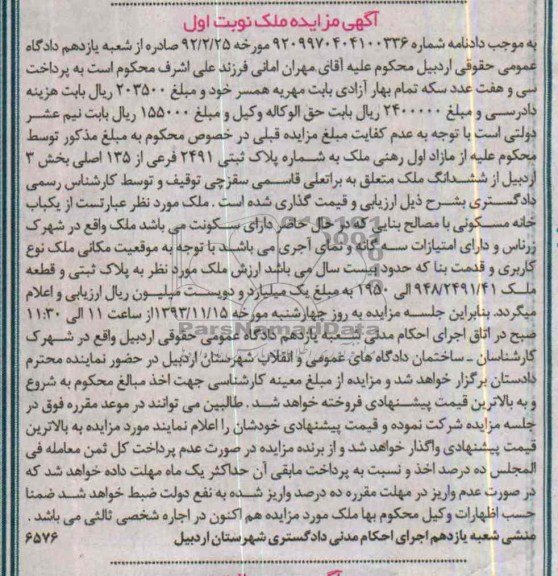 آگهی مزایده ملک نوبت اول
به موجب دادنامه شماره ۹۲۰۹۹۷۰۴۰۴۱۰۰۳۳۶ مورخه ۹۲/۲/۲۵ صادره از شعبه یازدهم دادگاه
عمومی حقوقی اردبیل محکوم علیه آقای مهران امانی فرزند علی اشرف محکوم است به پرداخت
سی و هفت عدد سکه تمام بهار آزادی بابت مهریه همسر خود و مبلغ ۲۰۳۵۰۰ ریال بابت هزینه
دادرسی و مبلغ ۲۴۰۰۰۰۰ ریال بابت حق الوکاله وکیل و مبلغ ۱۵۵۰۰۰ ریال بابت نیم عشر
دولتی است با توجه به عدم کفایت مبلغ مزایده قبلی در خصوص محکوم به مبلغ مذکور توسط
محکوم علیه از مازاد اول رهنی ملک به شماره پلاک ثبتی ۲۴۹۱ فرعی از ۱۳۵ اصلی بخش ۳
اردبیل از ششدانگ ملک متعلق به براتعلی قاسمی سقزچی توقیف و توسط کارشناس رسمی
دادگستری بشرح ذیل ارزیابی و قیمت گذاری شده است . ملک مورد نظر عبارتست از یکباب
خانه مسکونی با مصالح بنایی که در حال حاضر دارای سکونت می باشد ملک واقع در شهرک
زرناس و دارای امتیازات سه گانه و نمای آجری می باشد با توجه به موقعیت مکانی ملک نوع
کاربری و قدمت بنا که حدود بیست سال می باشد ارزش ملک مورد نظر به پلاک ثبتی و قطعه
ملک ۹۴۸/۲۴۹۱/۴۱ الی ۱۹۵۰ به مبلغ یک میلیارد و دویست میلیون ریال ارزیابی و اعلام
میگردد. بنابراین جلسه مزایده به روز چهارشنبه مورخه ۱۳۹۳/۱۱/۱۵ از ساعت ۱۱ الی ۱۱:۳۰
صبح در اتاق اجرای احکام مدنی شعبه یازدهم دادگاه عمومی حقوقی اردبیل واقع در شهرک
کارشناسان ـ ساختمان دادگاه های عمومی و انقلاب شهرستان اردبیل در حضور نماینده محترم
دادستان برگزار خواهد شد و مزایده از مبلغ معینه کارشناسی جهت اخذ مبالغ محکوم به شروع
و به بالاترین قیمت پیشنهادی فروخته خواهد شد . طالبین می توانند در موعد مقرره فوق در
جلسه مزایده شرکت نموده و قیمت پیشنهادی خودشان را اعلام نمایند مورد مزایده به بالاترین
قیمت پیشنهادی واگذار خواهد شد و از برنده مزایده در صورت عدم پرداخت کل ثمن معامله فی
المجلس ده درصد اخذ و نسبت به پرداخت مابقی آن حداکثر یک ماه مهلت داده خواهد شد که
در صورت عدم واریز در مهلت مقرره ده درصد واریز شده به نفع دولت ضبط خواهد شد ضمنا
حسب اظهارات وکیل محکوم بها ملک مورد مزایده هم اکنون در اجاره شخصی ثالثی می باشد .
منشی شعبه یازدهم اجرای احکام مدنی دادگستری شهرستان اردبیل ۶۵۷۶
ParsNamadData